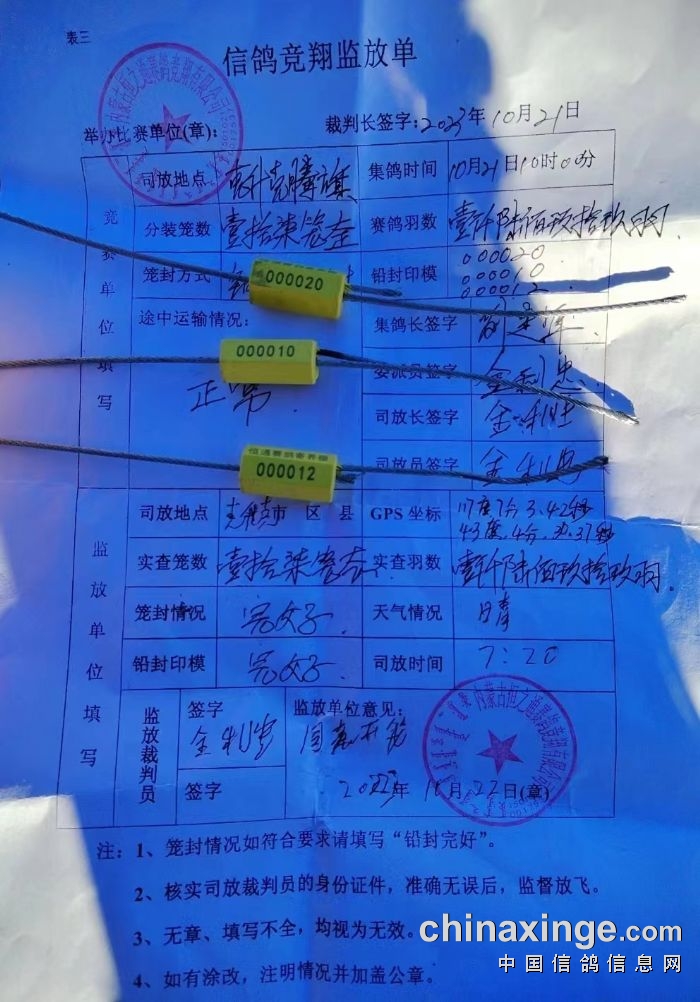 表三
信鸽竞翔监放单
举办比赛单位(章): 裁判长签字: 2023年10月21日
竞赛单位填写
司放地点 克什克腾旗 集鸽时间 10月21日10时00分
分装笼数 壹拾柒笼整 赛鸽羽数 壹仟陆佰玖拾玖羽.
笼封方式 铅封印模 000020
000010
000012
000020
途中运输情况: 集鸽长签字
000010
委派员签字 金利忠
正常 司放长签字 金利胜
恒通赛鸽寄养棚
000012
司放员签字 金利忠
监放单位填写
司放地点 市 区 县 GPS 坐标 117度7分3.42秒
43度.4分.
实查笼数 壹拾柒笼 实查羽数 壹仟陆佰玖拾玖羽.
笼封情况 完好. 天气情况 晴
铅封印模 完好. 司放时间 7:20
监放裁判员 签字 监放单位意见:
同意开笼
签字 2023年10月22日(章)
注: 1、笼封情况如符合要求请填写“铅封完好”。
2、核实司放裁判员的身份证件，准确无误后，监督放飞。
3、无章、填写不全，均视为无效。
4、如有涂改，注明情况并加盖公章。
chinaxinge.com
中国信鸽信息网